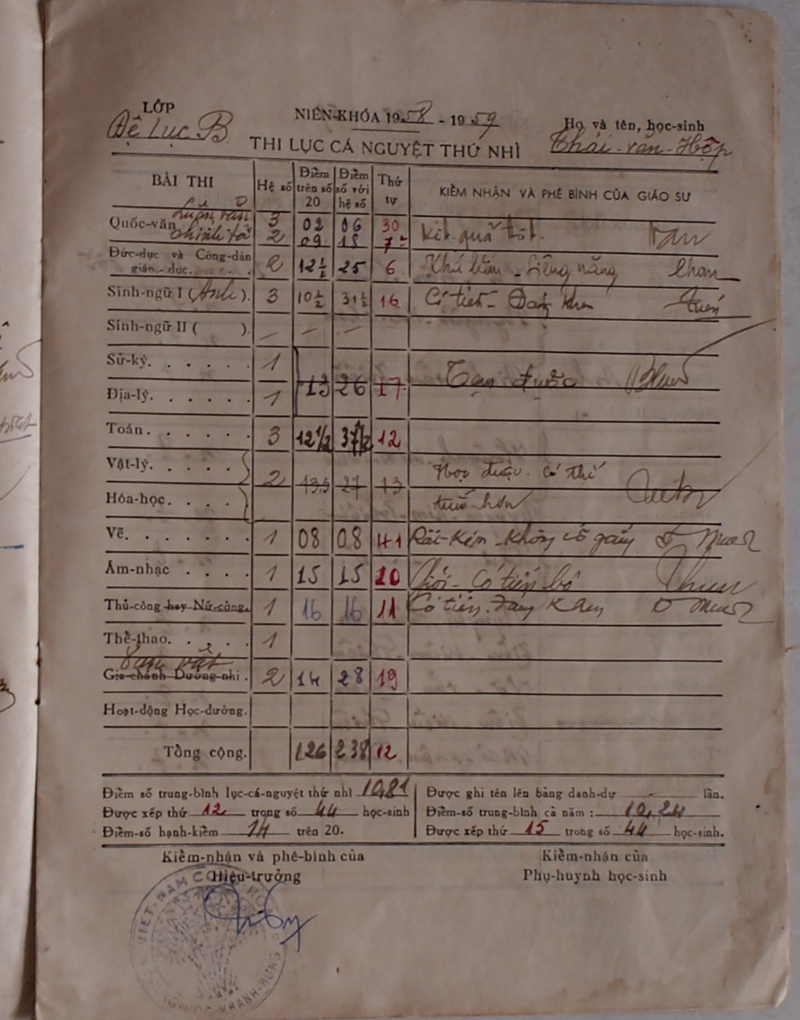 LỚP
Đệ Lục B
NIÊN-KHÓA 1958 - 1959
Họ và tên, học-sinh
Thái-văn-Hộp
THI LỤC CÁ NGUYỆT THỨ NHÌ
BÀI THI Hệ số Điểm trên số 20 Điểm số với hệ số Thứ tự KIỂM NHẬN VÀ PHÊ BÌNH CỦA GIÁO SƯ
Quốc-văn luận văn 3 02 06 30 Kết quả tốt.
chính tả 2 09 18 7
Đức-dục và Công-dân giáo-dục. 2 12½ 25 6 siêng năng
Sinh-ngữ I (Anh). 3 10½ 31½ 16 Có tiến - Đáng khen
Sinh-ngữ II ( ). — — —
Sử-ký. 1
Địa-lý. 1 13 26 17 Tạm được
Toán. 3 12½ 37½ 12
Vật-lý. 2 13,5 27 13 Học điều. Có thể
Hóa-học. tiến hơn
Vẽ. 1 08 08 41 Rất-Kém Không cố gắng
Âm-nhạc 1 15 15 20 Có tiến bộ
Thủ-công hay Nữ-công. 1 16 16 11 Có tiến. Đáng Khen
Thể-thao. 1
Vạn vật
Gia-chánh Dưỡng-nhi. 2 14 28 19
Hoạt-động Học-đường.
Tổng cộng. 126 238 12
Điểm số trung-bình lục-cá-nguyệt thứ nhì 10,81
Được xếp thứ 12 trong số 44 học-sinh
Điểm-số hạnh-kiểm 14 trên 20.
Được ghi tên lên bảng danh-dự - lần.
Điểm-số trung-bình cả năm : 10,24
Được xếp thứ 15 trong số 44 học-sinh.
Kiểm-nhận và phê-bình của
Hiệu-trưởng
Kiểm-nhận của
Phụ-huynh học-sinh
VIỆT-NAM CỘNG-HÒA
KHÁNH-HƯNG